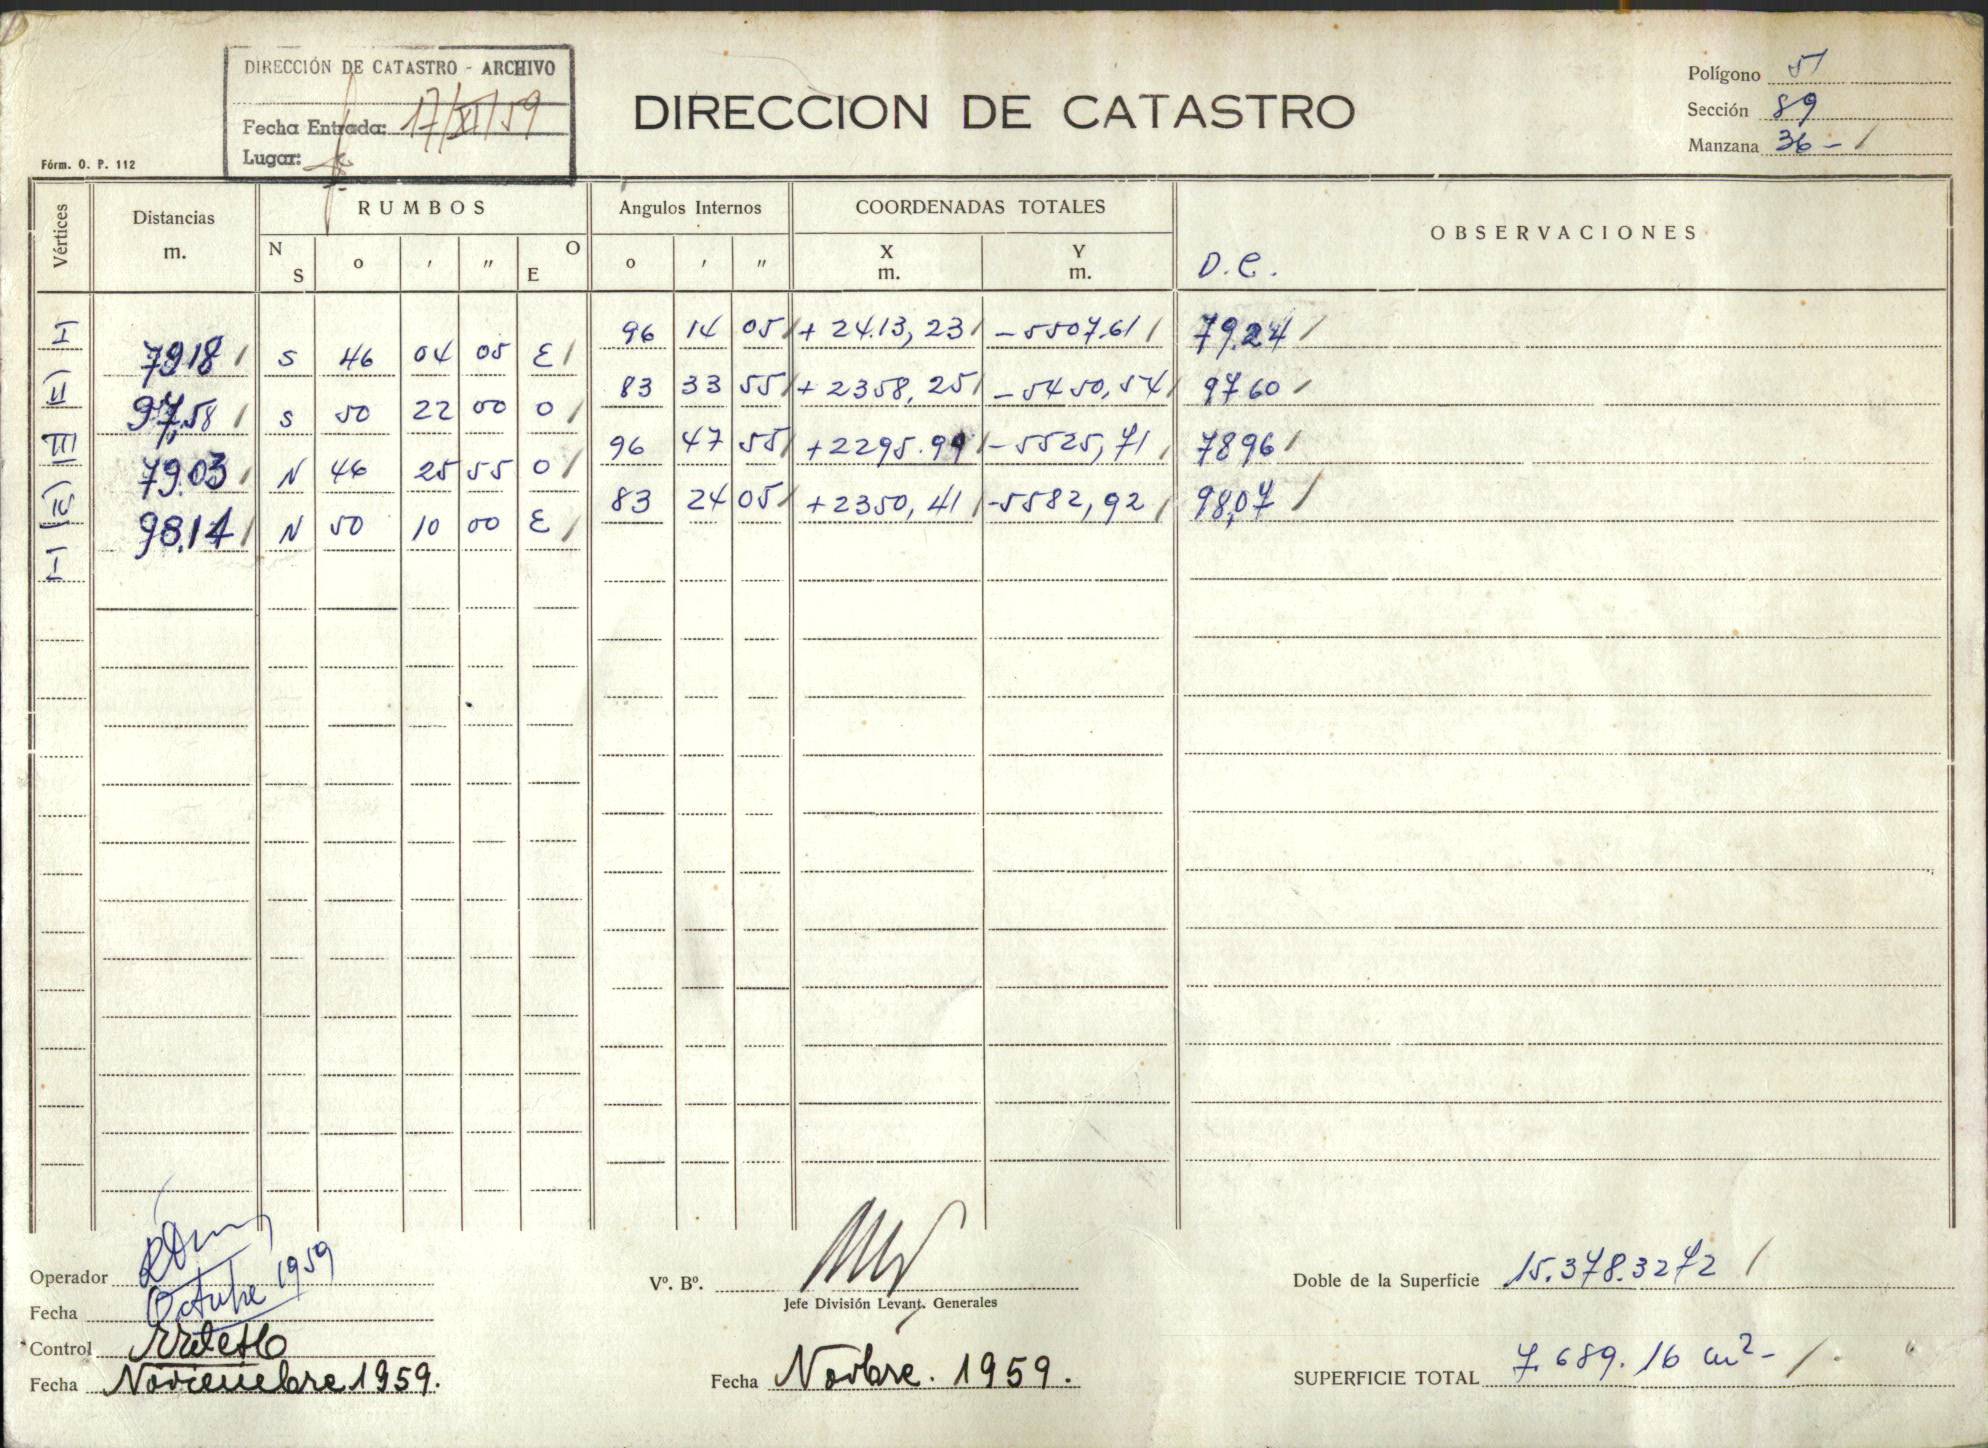 DIRECCIÓN DE CATASTRO - ARCHIVO
Fecha Entrada: 17/XI/59
Lugar:
Fórm. O. P. 112
DIRECCION DE CATASTRO
Polígono 51
Sección 89
Manzana 36 - /
Vértices Distancias m. RUMBOS Angulos Internos COORDENADAS TOTALES OBSERVACIONES
N S o ' " E O o ' " X m. Y m. D.C.
I 96 14 05 / + 24.13,23 / - 5507.61 / 79.24 /
79.18 / S 46 04 05 E /
II 83 33 55 / + 2358,25 / - 5450,54 / 97 60 /
97,58 / S 50 22 00 O /
III 96 47 55 / + 2295.99 / - 5525,71 / 78 96 /
79.03 / N 46 25 55 O /
IV 83 24 05 / + 2350,41 / - 5582,92 / 98,07 /
98.14 / N 50 10 00 E /
I
Operador
Fecha Octubre 1959
Control
Fecha Noviembre 1959.
Vº. Bº.
Jefe División Levant. Generales
Fecha Novbre. 1959.
Doble de la Superficie 15.378.3272 /
SUPERFICIE TOTAL 7.689.16 m² - /.